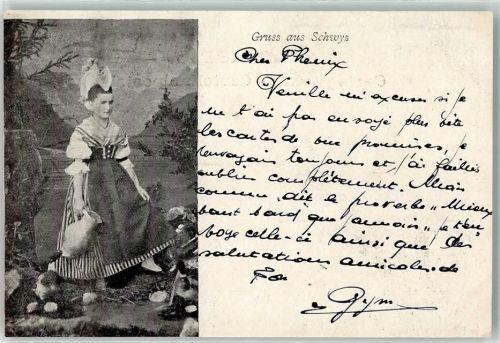 Gruss aus Schwyz
Cher Phenix
Veuille m'excuser si je
ne t'ai pas envoyé plus vite
les cartes de vue promises, je
renvoyais toujours et j'ai faillis
oublier complètement. Mais
comme dit le proverbe "Mieux
vaut tard que jamais", je t'en-
voye celle-ci ainsi que des
salutations amicales de